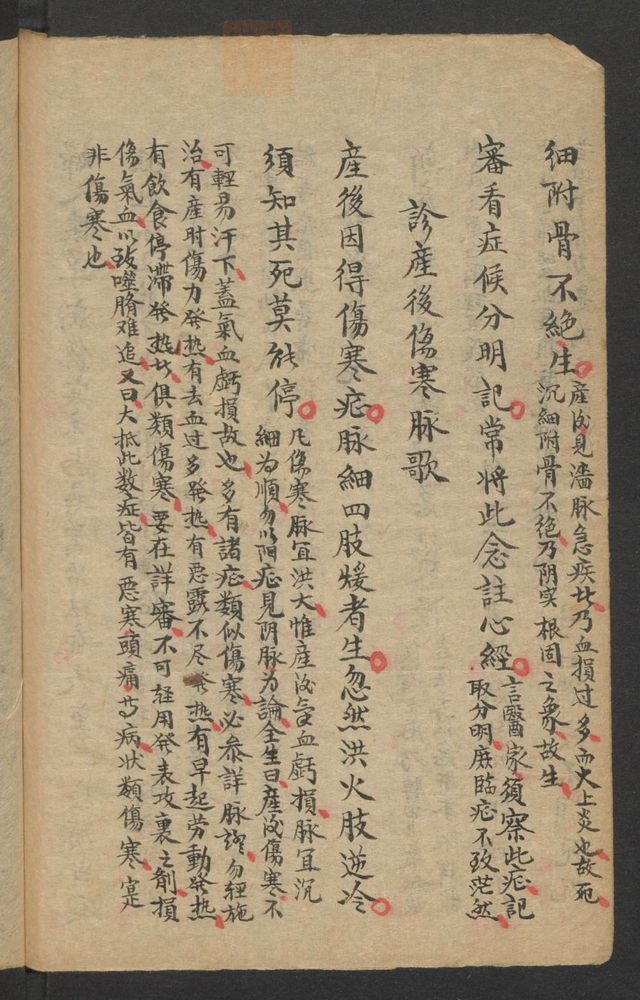 細附骨不絶生
產后見濇脉急疾此乃血損过多而火上炎也故死
沉細附骨不絶乃阴实根固之象故生
審看症候分明記常將此念註心經
言醫家須察此症記
取分明庶臨症不致茫然
診產後傷寒脉歌
產後因得傷寒症脉細四肢煖者生忽然洪火肢逆冷
須知其死莫能停
凡傷寒脉宜洪大惟產后氣血虧損脉宜沉
細为順勿以阳症見阴脉为論全生曰產后傷寒不
可輕易汗下蓋氣血虧損故也多有諸症類似傷寒必叅詳脉證勿輕施
治有產时傷力發热有去血过多發热有恶露不尽發热有早起劳動發热
有飲食停滯發热此俱類傷寒要在詳審不可轻用發表攻裏之劑損
傷氣血以致噬臍难追又曰大抵此数症皆有恶寒頭痛等病状類傷寒寔
非傷寒也